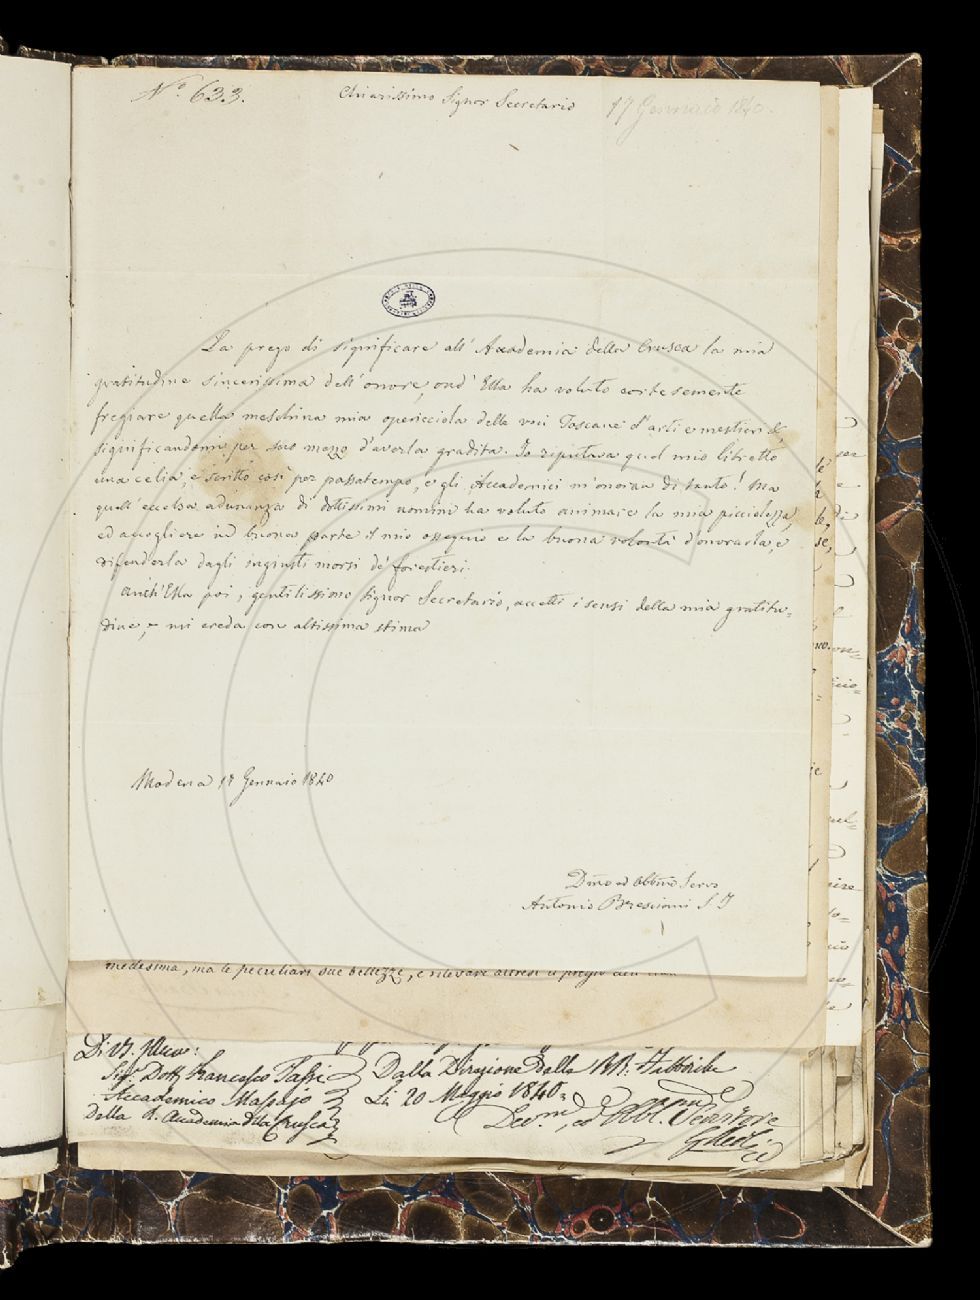 N.° 633.
Chiarissimo Signor Secretario
17 Gennaio 1840.
La prego di significare all' Accademia della Crusca la mia
gratitudine sincerissima dell' onore, ond' Ella ha voluto cortesemente
fregiare quella meschina mia opericciola delle voci Toscane d'arti e mestieri &c,
significandomi per suo mezzo d'averla gradita. Io riputava quel mio libretto
una celia, e scritto così per passatempo, e gli Accademici m'onoran di tanto! Ma
quell' eccelsa adunanza di dottissimi uomini ha voluto animare la mia picciolezza,
ed accogliere in buona parte il mio ossequio e la buona volontà d'onorarla, e
difenderla dagli ingiusti morsi de' forestieri.
Anch' Ella poi, gentilissimo Signor Secretario, accetti i sensi della mia gratitu-
dine, e mi creda con altissima stima
Modena 17 Gennaio 1840
Dmo ed Obbmo Servo
Antonio Bresciani S J
medesima, ma le peculiari sue bellezze, e rilevare altresì il pregio
Di VS. Illma:
Sigr. Dott. Francesco Tassi
Accademico Massajo
della R. Accademia della Crusca
Dalla Direzione della
Li 20 Maggio 1840.
Dev.mo, ed Obbl. Servitore